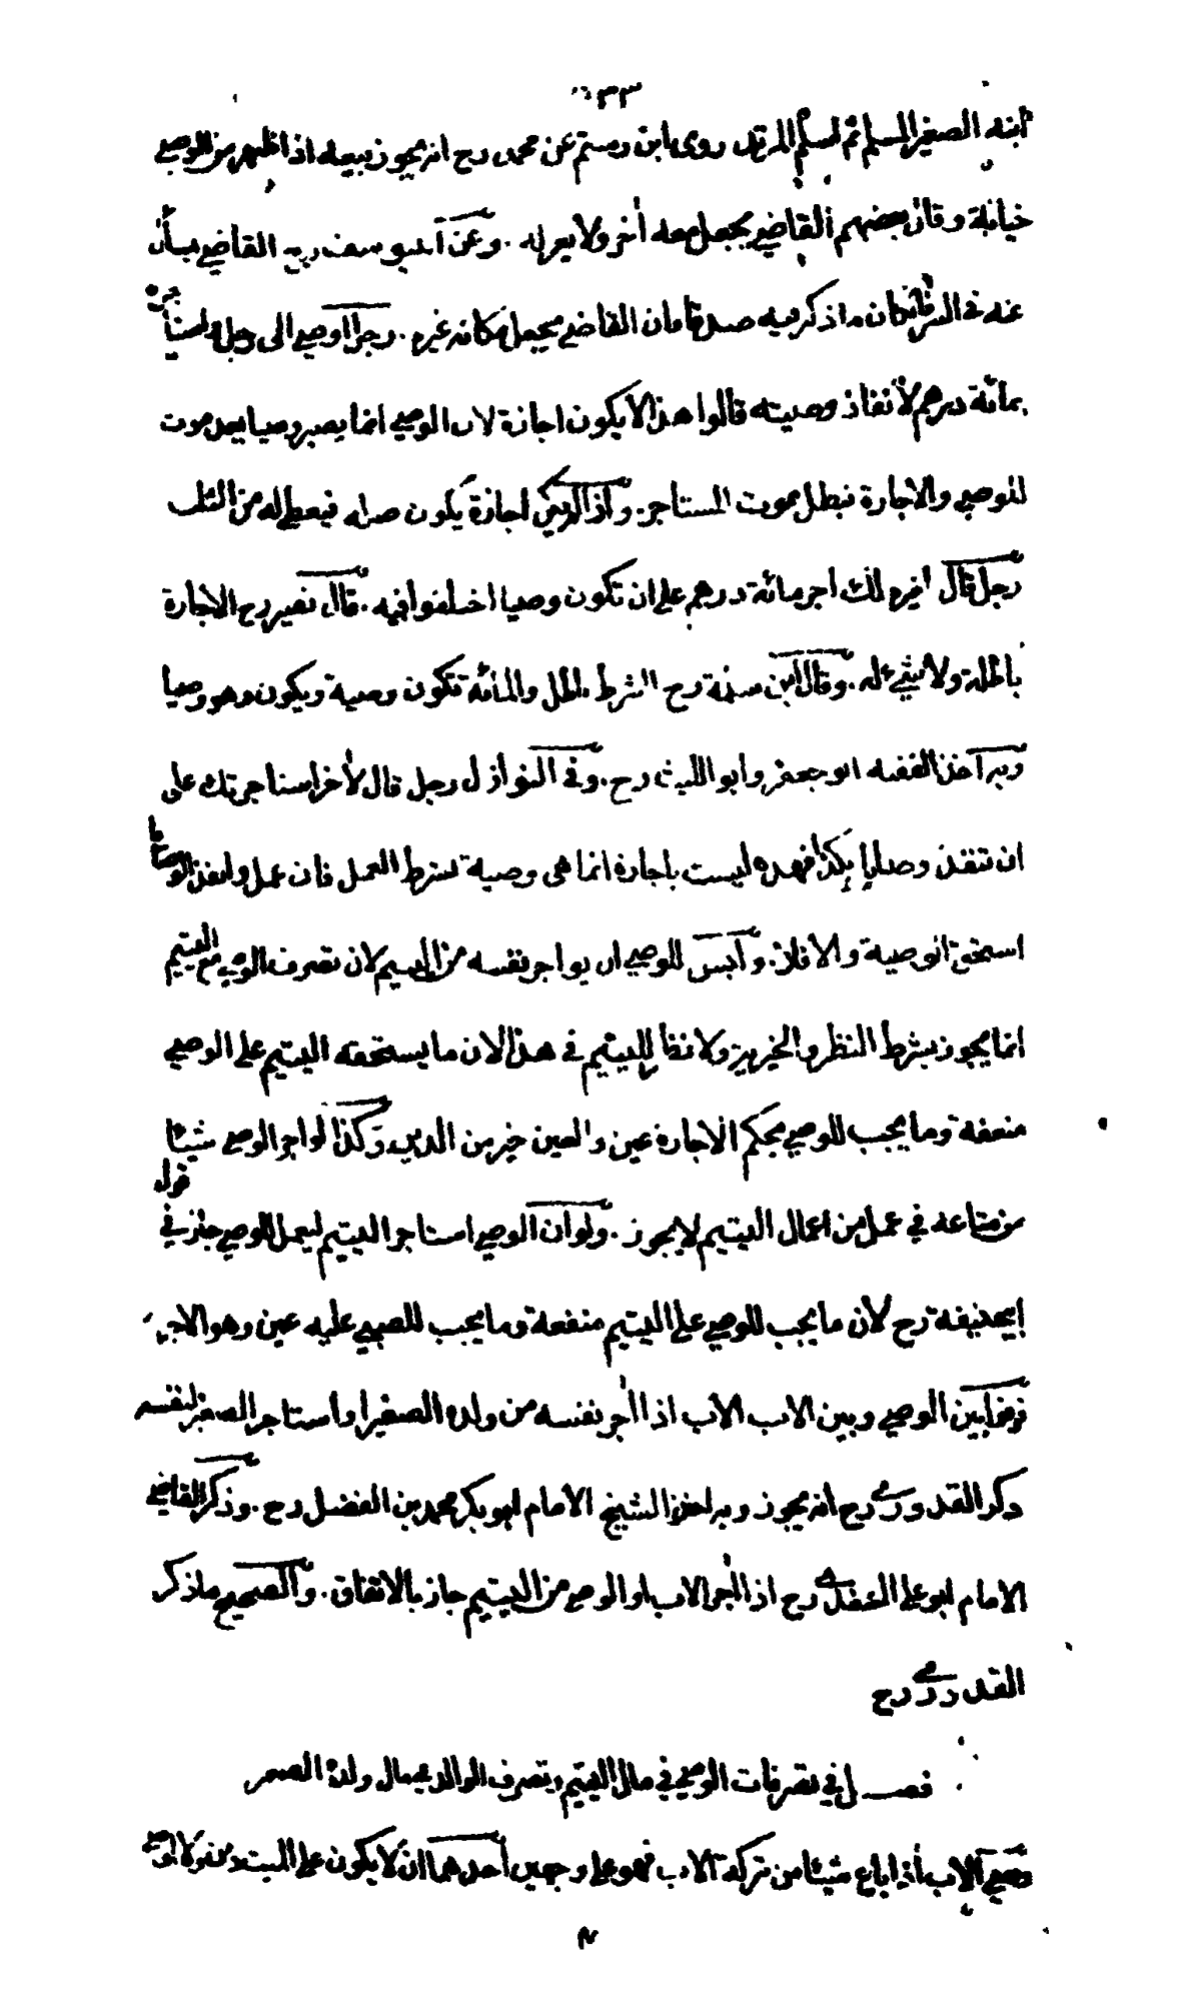 ٣٣
ابنه الصغير المسلم ثم اسلم المرتد روى ابن رستم عن محمد رح انه يجوز بيعه اذا ظهر من الوصي
خيانة وقال بعضهم القاضي يجعل معه آخر ولا يعزله . وعن ابي يوسف رح القاضي يسأل
عنه في السر فان كان ما ذكر فيه صدقا فان القاضي يجعل مكانه غيره . رجل اوصى الى رجل
بمائة درهم لانفاذ وصيته قالوا هذا لا يكون اجازة لان الوصي انما يصير وصيا بعد موت
الموصي والاجارة تبطل بموت المستاجر . واذا لم يكن اجازة يكون صلة فيعطى له من الثلث
رجل قال لغيره لك اجر مائة درهم على ان تكون وصيا اختلفوا فيه . قال نصير رح الاجارة
باطلة ولا شئ له . وقال ابن سلمة رح الشرط باطل والمائة تكون وصية ويكون هو وصيا
وبه اخذ الفقيه ابو جعفر وابو الليث رح . وفي النوازل رجل قال لآخر استاجرتك على
ان تنفذ وصايا بكذا فهذه ليست باجارة انما هي وصية بشرط العمل فان عمل وانفذ الوصايا
استحق الوصية والا فلا . وليس للوصي ان يواجر نفسه من اليتيم لان تصرف الوصي مع اليتيم
انما يجوز بشرط النظر والخيرية ولا نظر لليتيم في هذا لان ما يستحقه اليتيم على الوصي
منفعة وما يجب للوصي بحكم الاجارة عين والعين خير من الدين وكذا لو اجر الوصي شيئا
من متاعه في عمل من اعمال اليتيم لا يجوز . ولو ان الوصي استاجر اليتيم ليعمل للوصي جاز في قول
ابيحنيفة رح لان ما يجب للوصي على اليتيم منفعة وما يجب للصبي عليه عين وهو الاجر
فرقوا بين الوصي وبين الاب الاب اذا آجر نفسه من ولده الصغير او استاجر الصغير لنفسه
ذكر القدوري رح انه يجوز وبه اخذ الشيخ الامام ابو بكر محمد بن الفضل رح . وذكر القاضي
الامام ابو علي رح اذا آجر الاب او الوصي من اليتيم جاز بالاتفاق . والصحيح ما ذكر
القدوري رح
فصل في تصرفات الوصي في مال اليتيم وتصرف الوالد بمال ولده الصغير
وصي الاب اذا باع شيئا من تركة الاب فهو على وجهين احدهما ان لا يكون على الميت دين ولا